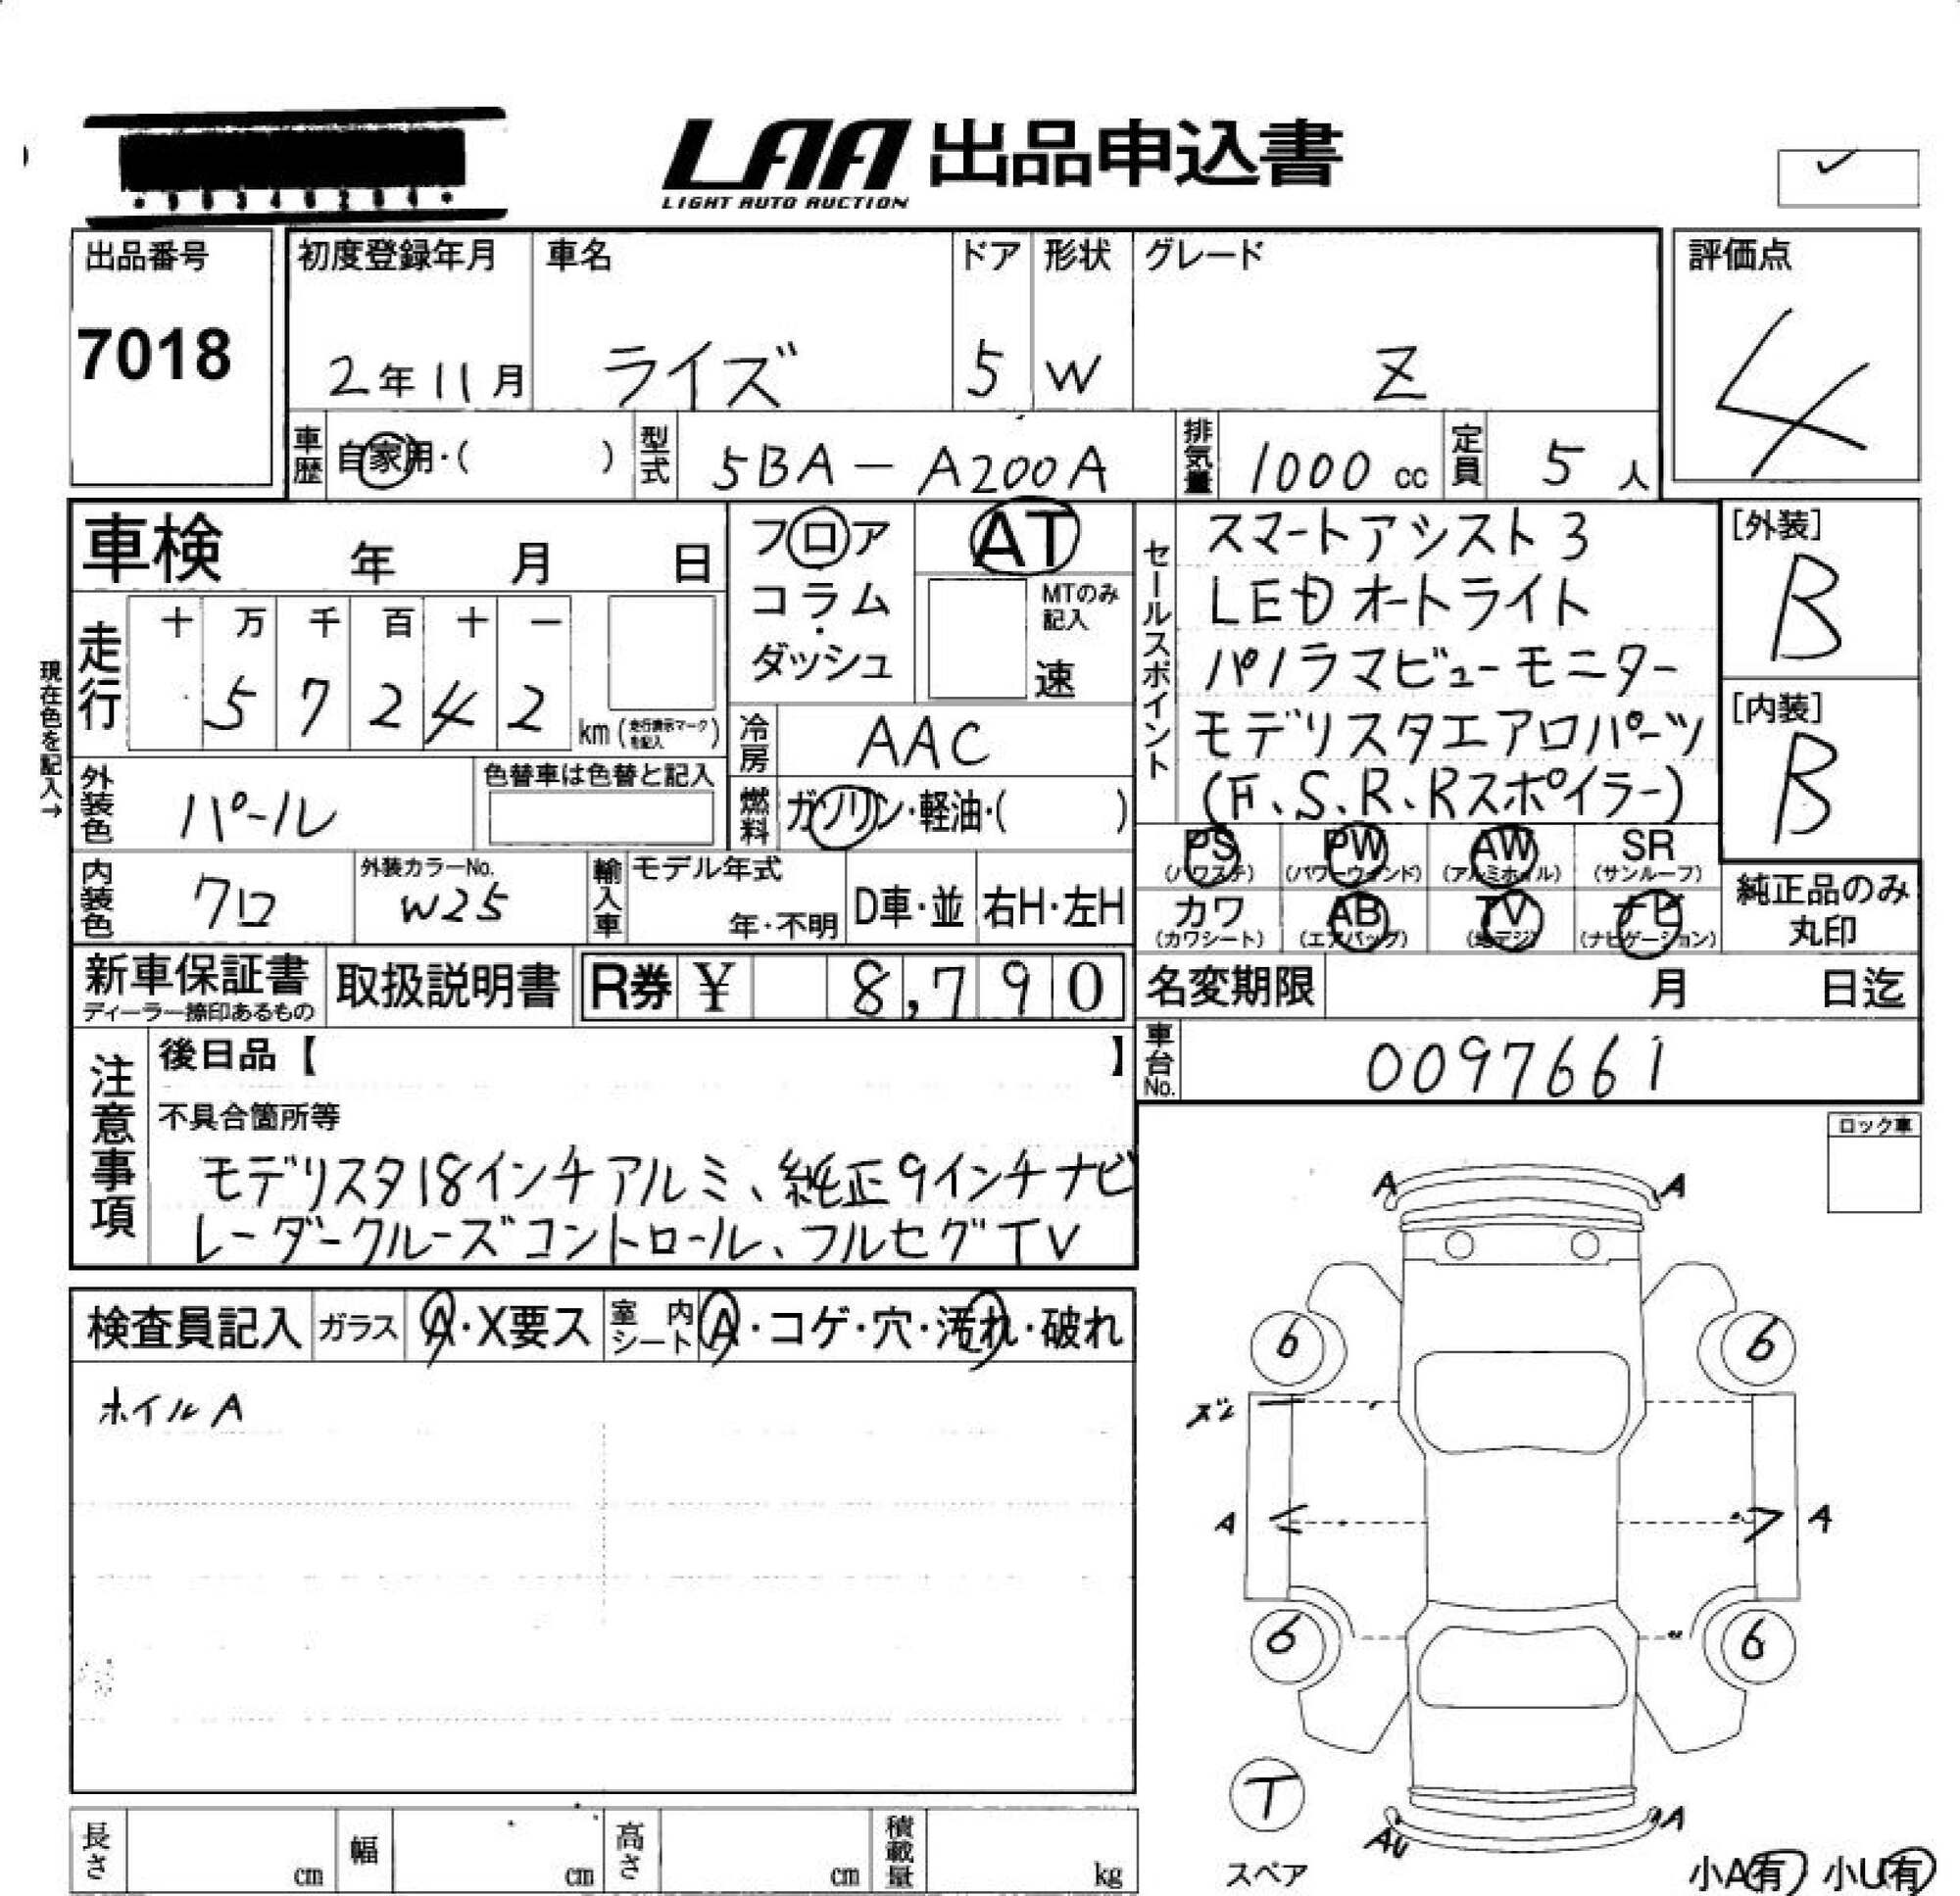 LAA 出品申込書
LIGHT AUTO AUCTION
出品番号
7018
初度登録年月
2年11月
車名
ライズ
ドア
5
形状
W
グレード
Z
評価点
4
車歴
自家用・( )
型式
5BA-A200A
排気量
1000cc
定員
5人
車検 年 月 日
フロア
コラム
・
ダッシュ
AT
MTのみ
記入
速
セールスポイント
スマートアシスト3
LEDオートライト
パノラマビューモニター
モデリスタエアロパーツ
(F、S、R、Rスポイラー)
[外装]
B
[内装]
B
現在色を記入→
走行
十 万 千 百 十 一
5 7 2 4 2
km(走行表示マークを記入)
冷房
AAC
外装色
パール
色替車は色替と記入
燃料
ガソリン・軽油・( )
PS
(パワステ)
PW
(パワーウィンド)
AW
(アルミホイル)
SR
(サンルーフ)
カワ
(カワシート)
AB
(エアバッグ)
TV
(地デジ)
ナビ
(ナビゲーション)
純正品のみ
丸印
内装色
クロ
外装カラーNo.
W25
輸入車
モデル年式
年・不明
D車・並
右H・左H
新車保証書
ディーラー捺印あるもの
取扱説明書
R券 ¥ 8,790
名変期限 月 日迄
車台No.
0097661
注意事項
後日品【 】
不具合箇所等
モデリスタ18インチアルミ、純正9インチナビ
レーダークルーズコントロール、フルセグTV
ロック車
検査員記入
ガラス
A・X要ス
室内シート
A・コゲ・穴・汚れ・破れ
ホイルA
A A
6 6
ズレ
A A
6 6
T
スペア
AU A
小A有 小U有
長さ cm
幅 cm
高さ cm
積載量 kg